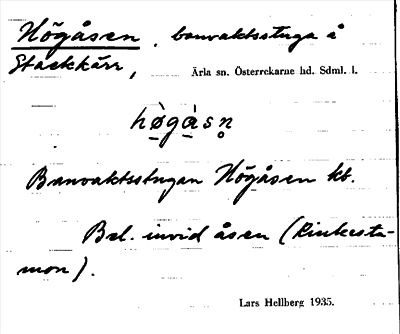 Högåsen, banvaktsstuga å
Stackkärr,
Ärla sn. Österrekarne hd. Sdml. l.
hò̲gà̲sn̥
Banvaktsstugan Högåsen kb.
Bel. invid åsen (Kinkesta-
mon).
Lars Hellberg 1935.